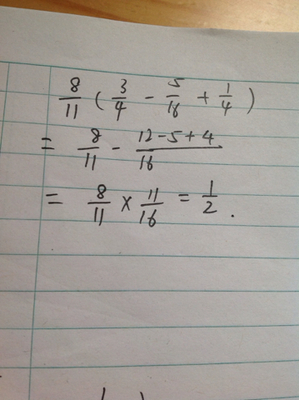 8/11 ( 3/4 - 5/16 + 1/4 )
= 8/11 - 12-5+4/16
= 8/11 × 11/16 = 1/2 .